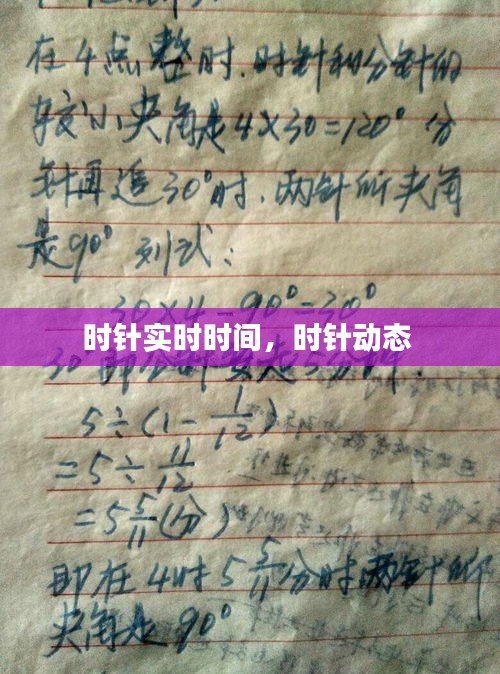 在4点整时,时针和分针的
较小夹角是4×30=120°分
针再追30°时,两针所夹角
是90°列式:
30×4-90°=30°
时针实时时间，时针动态
30即分针要走5分针.
5÷(1-1/12)
=5÷11/12
=5 5/11(分)
即在4时5 5/11分时,两针所
夹角是90°